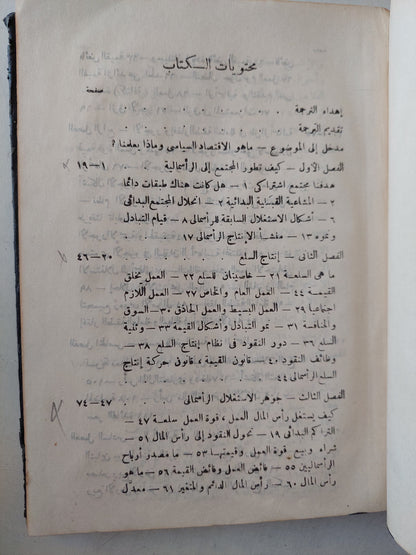 محتويات الكتاب
صفحة
إهداء الترجمة
تقديم الترجمة
مدخل إلى الموضوع — ماهو الاقتصاد السياسى وماذا يعلمنا ؟
الفصل الأول — كيف تطور المجتمع إلى الرأسمالية . ١ — ١٩
هدفنا مجتمع اشتراكى ١ — هل كانت هناك طبقات دائما
٢ — المشاعية القبلية البدائية ٢ — انحلال المجتمع البدائى
٦ — أشكال الاستغلال السابقة للرأسمالى ٨ — قيام التبادل
ونموه ١٣ — منشأ الإنتاج الرأسمالى ١٧
الفصل الثانى — إنتاج السلع . . . ٢٠ — ٤٦
ما هى السلعة ٢١ — خاصيتان للسلع ٢٢ — العمل يخلق
القيمة ٤٤ — العمل العام والخاص ٢٧ — العمل اللازم
اجتماعيا ٢٩ — العمل البسيط والعمل الحاذق ٣٠ — السوق
والمنافسة ٣١ — نمو التبادل وأشكال القيمة ٣٣ — وثنية
السلع ٣٦ — دور النقود فى نظام إنتاج السلع ٣٨ —
وظائف النقود ٤٠ — قانون القيمة، قانون حركة إنتاج
السلع الرأسمالى ٤٤
الفصل الثالث — جوهر الاستغلال الرأسمالى . ٤٧ — ٧٤
كيف يستغل رأس المال العمل، قوة العمل سلعة ٤٧ —
التراكم البدائى ١٩ — تحول النقود إلى رأس المال ٥١ —
شراء وبيع قوة العمل وقيمتها ٥٣ — ما مصدر أرباح
الرأسماليين ٥٥ — فائض العمل وفائض القيمة ٥٦ — ما هو
رأس المال ٦٠ — رأس المال الدائم والمتغير ٦١ — معدل